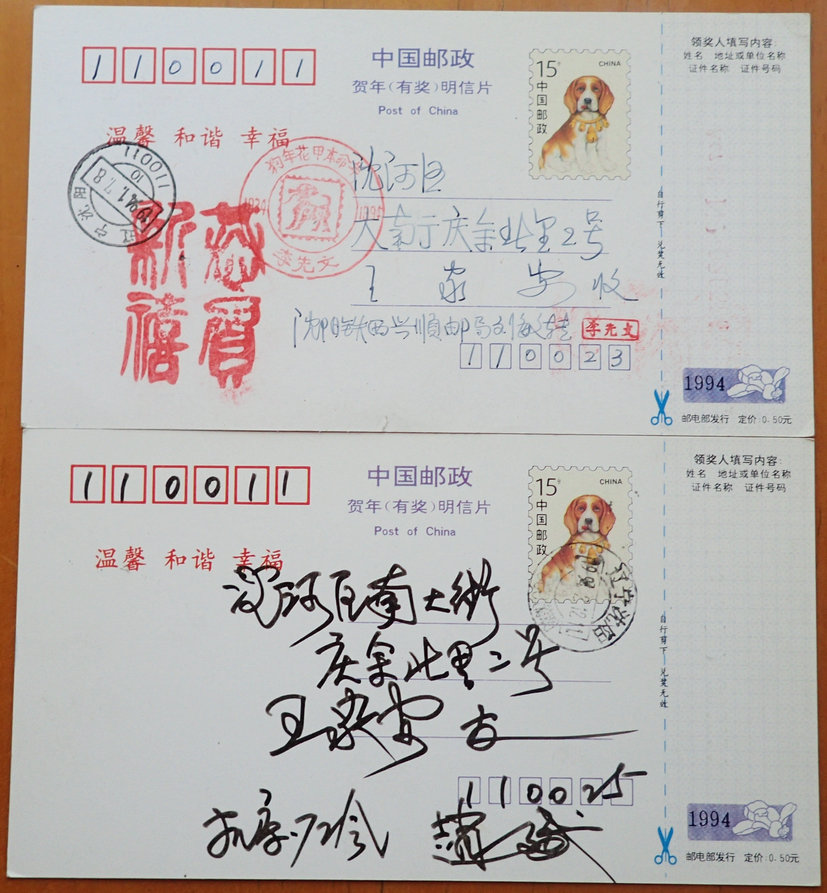 110011
中国邮政
贺年(有奖)明信片
Post of China
15分
CHINA
中国邮政
领奖人填写内容:
姓名 地址或单位名称
证件名称 证件号码
温馨 和谐 幸福
110011
辽宁沈阳
狗年花甲本命
李先文
恭贺
新禧
沈河区
大南庆余北里2号
王家安收
沈阳铁西兴顺邮局
李先文
110023
自行剪下 兑奖无效
1994
邮电部发行 定价:0.50元
110011
中国邮政
贺年(有奖)明信片
Post of China
15分
CHINA
中国邮政
领奖人填写内容:
姓名 地址或单位名称
证件名称 证件号码
温馨 和谐 幸福
辽宁沈阳
沈河区南大街
庆余北里二号
王家安
110025
自行剪下 兑奖无效
1994
邮电部发行 定价:0.50元